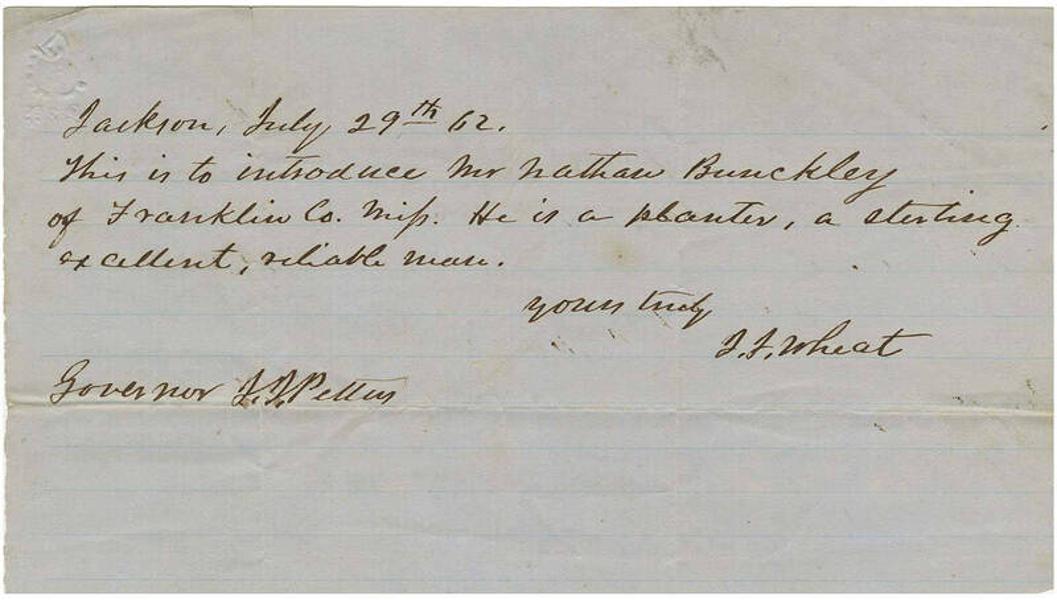 Jackson, July 29th 62.
This is to introduce Mr Nathan Bunckley
of Franklin Co. Miss. He is a planter, a sterling
excellent, reliable man.
Yours truly
J. F. Wheat
Governor J. J. Pettus